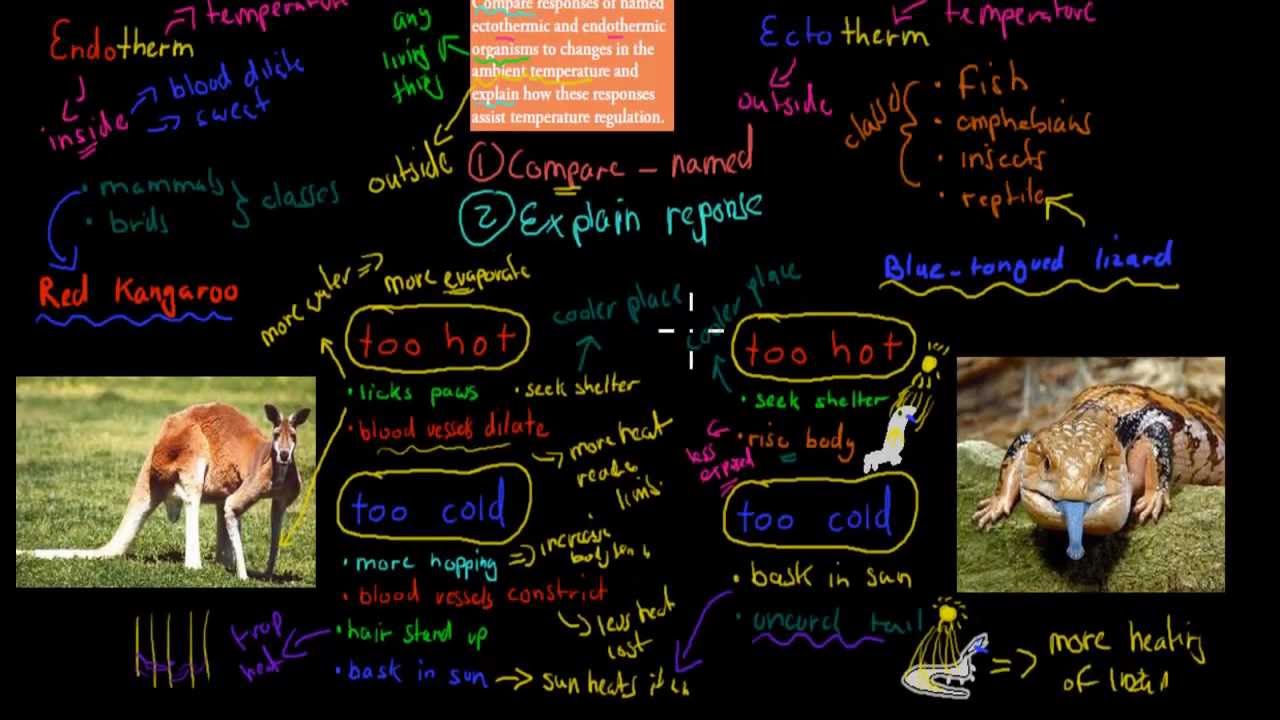 Endotherm
temperature
inside
blood dilate
sweat
mammals
brids
classes
Red Kangaroo
any
living
thing
Compare responses of named
ectothermic and endothermic
organisms to changes in the
ambient temperature and
explain how these responses
assist temperature regulation.
outside
① Compare - named
② Explain reponse
Ectotherm
temperature
outside
classes
Fish
amphebians
insects
reptile
Blue-tongued lizard
more water
more evaporate
too hot
licks paws
seek shelter
cooler place
blood vessels dilate
more heat
reaches
limbs.
too cold
more hopping
increase
blood vessels constrict
less heat
lost
hair stand up
trap
heat
bask in sun
sun heats
cooler place
too hot
seek shelter
rise body
less
exposed
too cold
bask in sun
uncurl tail
more heating
of